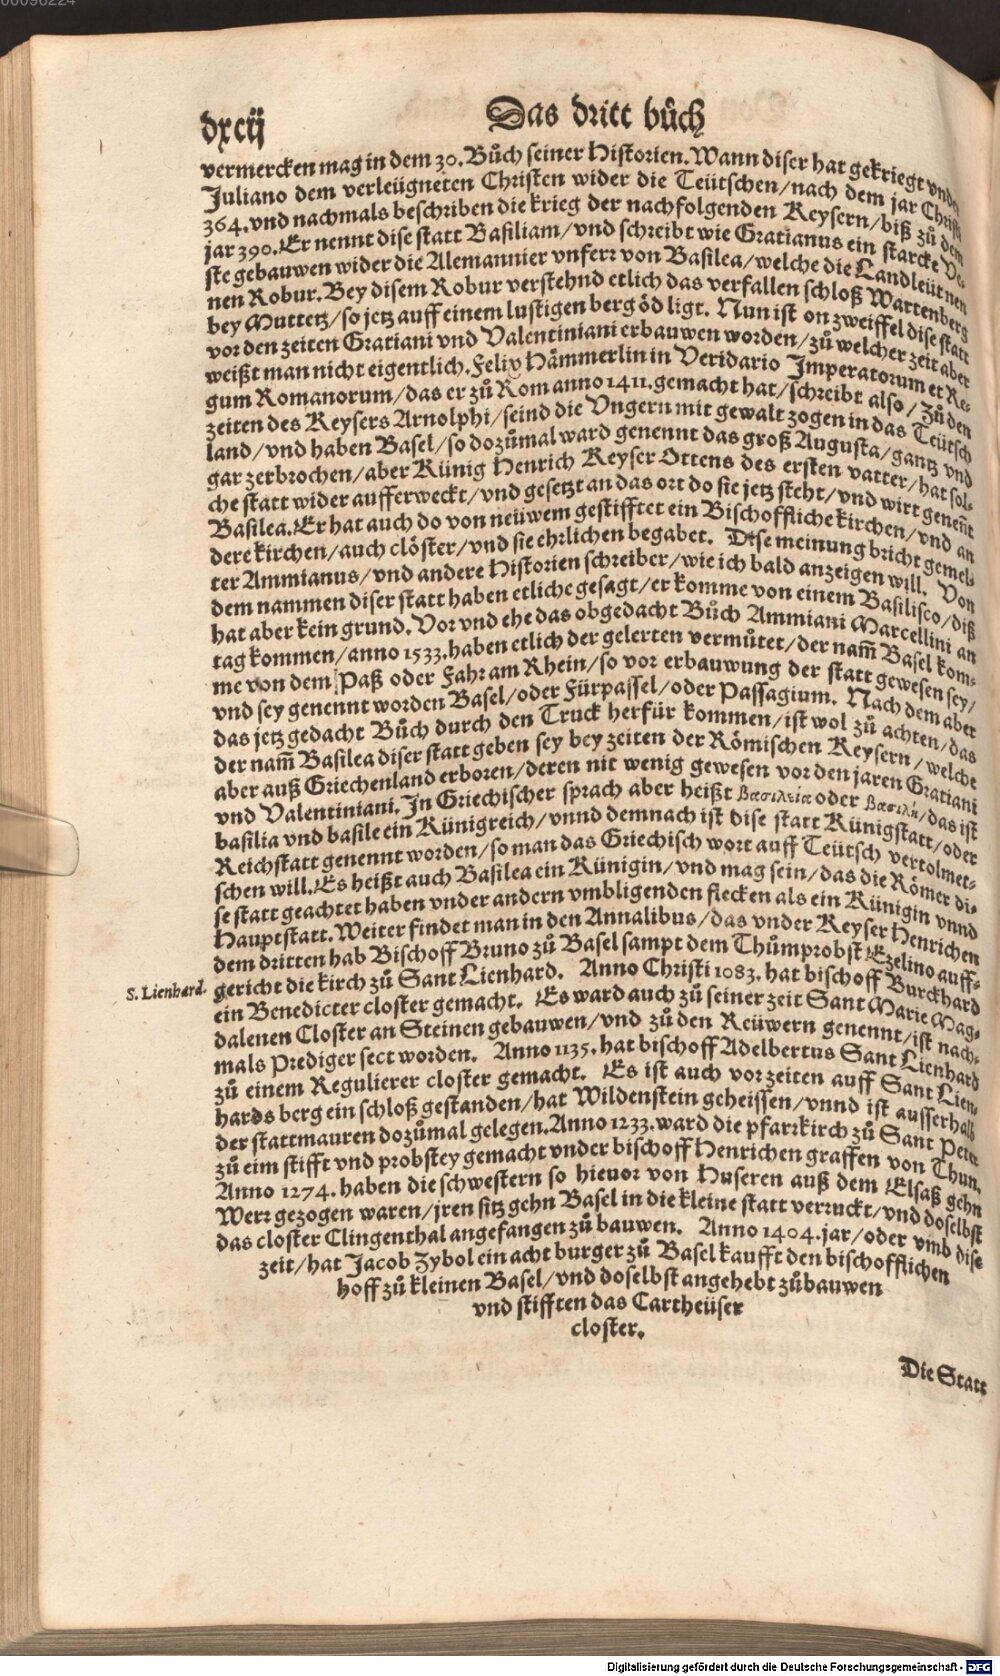 00096224
dxcij
Das dritt bůch
vermercken mag in dem 30. Bůch seiner Historien. Wann diser hat gekriegt vnder
Juliano dem verleügneten Christen wider die Teütschen/ nach dem jar Christi
364. vnd nachmals beschriben die krieg der nachfolgenden Keysern/ biß zů dem
jar 390. Er nennt dise statt Basiliam/ vnd schreibt wie Gratianus ein starcke Ve-
ste gebauwen wider die Alemannier vnferr von Basilea/ welche die Landleüt nen
nen Robur. Bey disem Robur verstehnd etlich das verfallen schloß Wartenberg
bey Muttetz/ so jetz auff einem lustigen berg öd ligt. Nun ist on zweiffel dise statt
vor den zeiten Gratiani vnd Valentiniani erbauwen worden/ zů welcher zeit aber
weißt man nicht eigentlich. Felix Hämmerlin in Veridario Imperatorum et Re-
gum Romanorum/ das er zů Rom anno 1411. gemacht hat/ schreibt also/ Zů den
zeiten des Keysers Arnolphi/ seind die Vngern mit gewalt zogen in das Teütsch
land/ vnd haben Basel/ so dozůmal ward genennt das groß Augusta/ gantz vnd
gar zerbrochen/ aber Künig Henrich Keyser Ottens des ersten vatter/ hat sol-
che statt wider aufferweckt/ vnd gesetzt an das ort do sie jetz steht/ vnd wirt geneñt
Basilea. Er hat auch do von neüwem gestifftet ein Bischoffliche kirchen/ vnd an
dere kirchen/ auch clöster/ vnd sie ehrlichen begabet. Dise meinung bricht gemel-
ter Ammianus/ vnd andere Historien schreiber/ wie ich bald anzeigen will. Von
dem nammen diser statt haben etliche gesagt/ er komme von einem Basilisco/ diß
hat aber kein grund. Vor vnd ehe das obgedacht Bůch Ammiani Marcellini an
tag kommen/ anno 1533. haben etlich der gelerten vermůtet/ der nam̃ Basel kom-
me von dem Paß oder Fahr am Rhein/ so vor erbauwung der statt gewesen sey/
vnd sey genennt worden Basel/ oder Fürpassel/ oder Passagium. Nach dem aber
das jetz gedacht Bůch durch den Truck herfür kommen/ ist wol zů achten/ das
der nam̃ Basilea diser statt geben sey bey zeiten der Römischen Keysern/ welche
aber auß Griechenland erboren/ deren nit wenig gewesen vor den jaren Gratiani
vnd Valentiniani. In Griechischer sprach aber heißt βασιλεία oder βασιλὴ/ das ist
basilia vnd basile ein Künigreich/ vnnd demnach ist dise statt Künigstatt/ oder
Reichstatt genennt worden/ so man das Griechisch wort auff Teütsch vertolmet-
schen will. Es heißt auch Basilea ein Künigin/ vnd mag sein/ das die Römer di-
se statt geachtet haben vnder andern vmbligenden flecken als ein Künigin vnnd
Hauptstatt. Weiter findet man in den Annalibus/ das vnder Keyser Henrichen
dem dritten hab Bischoff Bruno zů Basel sampt dem Thůmprobst Ezelino auff-
S. Lienhard.
gericht die kirch zů Sant Lienhard. Anno Christi 1083. hat bischoff Burckhard
ein Benedicter closter gemacht. Es ward auch zů seiner zeit Sant Marie Mag-
dalenen Closter an Steinen gebauwen/ vnd zů den Reüwern genennt/ ist nach-
mals Prediger sect worden. Anno 1135. hat bischoff Adelbertus Sant Lienhard
zů einem Regulierer closter gemacht. Es ist auch vor zeiten auff Sant Lien-
hards berg ein schloß gestanden/ hat Wildenstein geheissen/ vnnd ist ausserhalb
der stattmauren dozůmal gelegen. Anno 1233. ward die pfarrkirch zů Sant Peter
zů eim stifft vnd probstey gemacht vnder bischoff Henrichen graffen von Thun.
Anno 1274. haben die schwestern so hieuor von Huseren auß dem Elsaß gehn
Werr gezogen waren/ jren sitz gehn Basel in die kleine statt verruckt/ vnd doselbst
das closter Clingenthal angefangen zů bauwen. Anno 1404. jar/ oder vmb dise
zeit/ hat Jacob Zybol ein acht burger zů Basel kaufft den bischofflichen
hoff zů kleinen Basel/ vnd doselbst angehebt zůbauwen
vnd stifften das Cartheüser
closter.
Die Statt
Digitalisierung gefördert durch die Deutsche Forschungsgemeinschaft - DFG